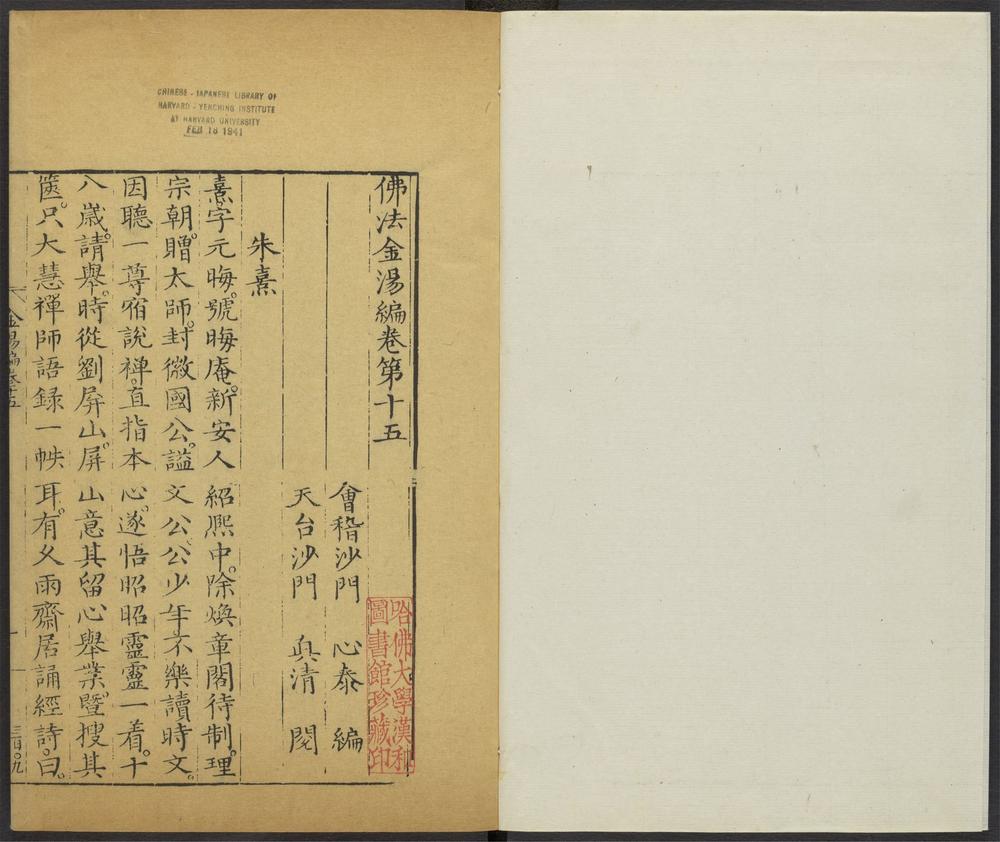 CHINESE - JAPANESE LIBRARY OF
HARVARD - YENCHING INSTITUTE
AT HARVARD UNIVERSITY
FEB 18 1941
佛法金湯編卷第十五
會稽沙門 心泰 編
天台沙門 真清 閱
朱熹
熹字元晦。號晦庵。新安人 紹熙中。除煥章閣待制。理
宗朝。贈太師。封徽國公。謚文公。公少年不樂讀時文。
因聽一尊宿說禪。直指本心。遂悟昭昭靈靈一着。十
八歲。請舉。時從劉屏山。屏山意其留心舉業。暨搜其
篋。只大慧禪師語錄一帙耳。有久雨齋居誦經詩。曰。
金湯編卷十五
一
哈佛大學漢和
圖書館珍藏印